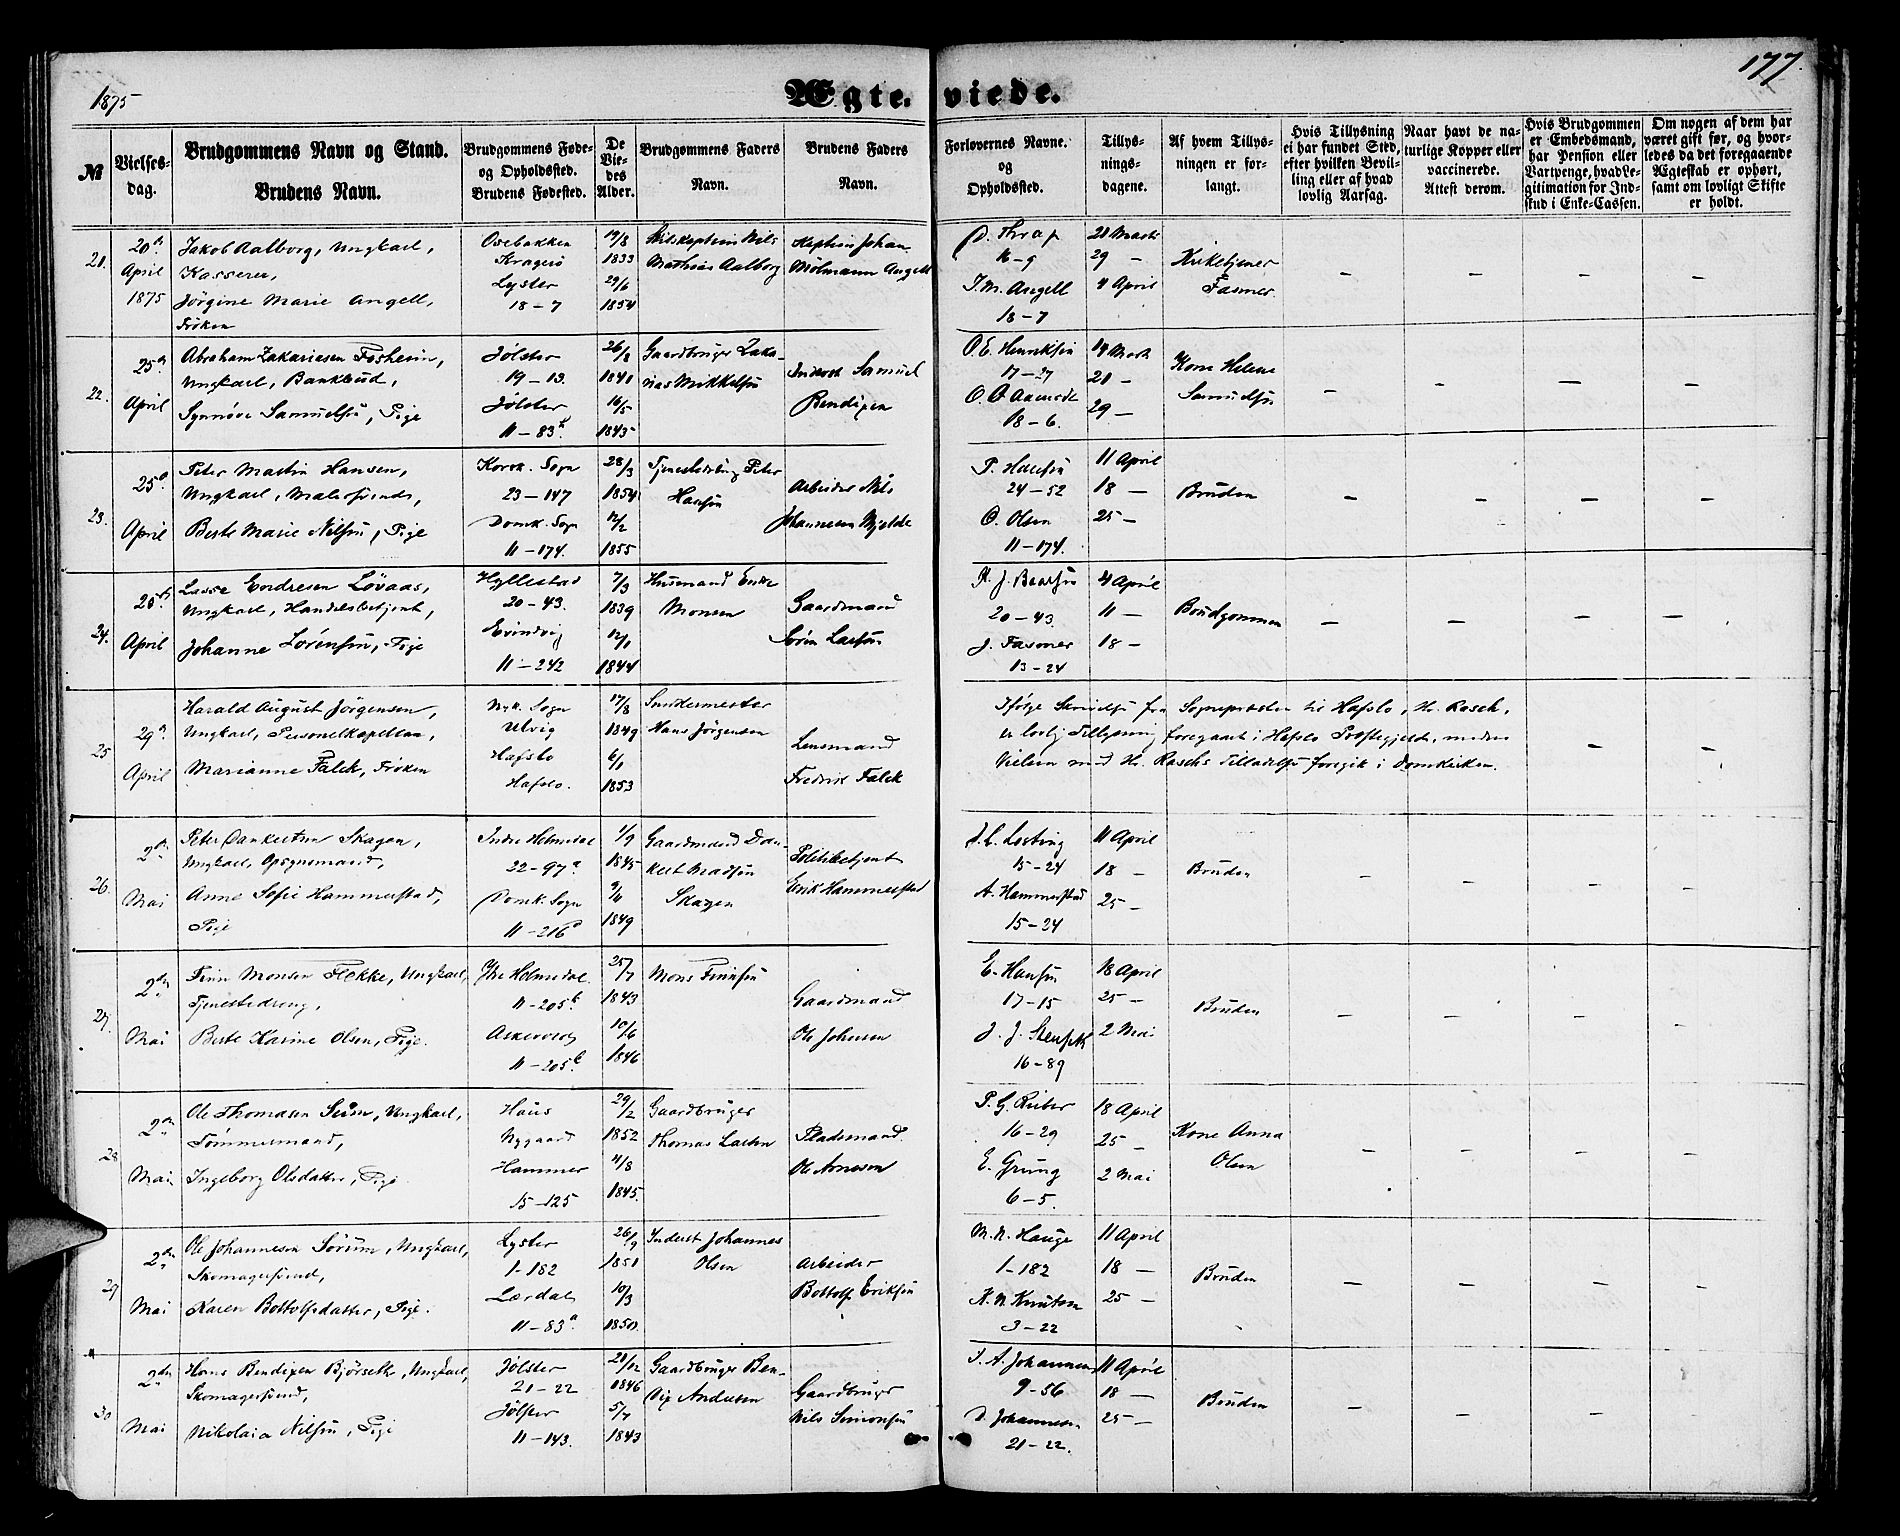 1875
Ægteviede.
177.
№
Vielses-dag.
Brudgommens Navn og Stand.
Brudens Navn.
Brudgommens Føde-
og Opholdssted.
Brudens Fødested.
De Vie-des Alder.
Brudgommens Faders
Navn.
Brudens Faders
Navn.
Forlovernes Navne.
og
Opholdssted.
Tillys-
nings-
dagene.
Af hvem Tillys-
ningen er for-
langt.
Hvis Tillysning
ei har fundet Sted,
efter hvilken Bevil-
ling eller af hvad
lovlig Aarsag.
Naar havt de na-
turlige Kopper eller
vaccinerede.
Attest derom.
Hvis Brudgommen
er Embedsmand,
har Pension eller
Vartpenge, hvad Le-
gitimation for Ind-
skud i Enke-Cassen.
Om nogen af dem har
været gift før, og hvor-
ledes da det foregaaende
Ægteskab er ophørt,
samt om lovligt Skifte
er holdt.
21.
20de
April
1875
Jakob Aalborg, Ungkarl,
Kasserer,
Jörgine Marie Angell,
Fröken
Osebakken
Kragerö
Lyster
18-7
19/8
1833
29/6
1854
Skibskaptein Nils
Mathias Aalborg
Kaptein Johan
Mølmann Angell
P. Thrap
16-9
J. M. Angell
18-7
21 Marts
29 -
4 April
Kirketjener
Fasmer.
22.
25de
April
Abraham Zakariasen Fosheim,
Ungkarl, Bankbud,
Synnöve Samuelsen, Pige
Jölster
19-13.
Jölster
11-83b.
26/8
1841
16/5
1843
Gaardbruger Zaka-
rias Mikkelsen
Inderst Samuel
Bendixen
O. E. Henriksen
17-27
18-6.
14 Marts
21 -
29 -
Kone Helene
Samuelsen
23.
25de
April
Peter Martin Hansen,
Ungkarl, Malersvend,
Berte Marie Nilsen, Pige
Korsk. Sogn
23-147
Domk. Sogn
11-174.
28/3
1854
12/2
1855
Peter
Hansen
Arbeider Nils
Johannesen Mjelde
P. Hansen
24-52
O. Olsen
11-174.
11 April
18 -
25 -
Bruden
24.
25de
April
Lasse Endresen Lövaas,
Ungkarl, Handelsbetjent,
Johanne Sörensen, Pige
Hyllestad
20-43.
Evindvig
11-242
7/3
1839
12/1
1844
Husmand Endre
Monsen
Gaardmand
Sören Larsen
20-43.
J. Fasmer
13-24
4 April
11 -
18 -
Brudgommen
25
29de
April
Harald August Jörgensen,
Ungkarl, Personelkapellan,
Marianne Falck, Fröken
Nyk. Sogn
Ulvig
Hafslo
Hafslo.
17/8
1849
6/1
1853
Snedkermester
Hans Jörgensen
Lensmand
Fredrik Falck
Ifölge Skrivelse fra Sognepræsten til Hafslo, Hr. Rasch,
er lovlig Tillysning foregaaet i Hafslo Præstegjeld, medens
Vielsen med Hr. Raschs Tilladelse foregik i Domkirken.
26.
2den
Mai
Peter Dankertsen Skagen,
Ungkarl, Opsynsmand,
Anne Sofie Hammerstad,
Pige
Indre Holmedal
22-97a
Domk. Sogn
11-216a
1/9
1845
9/11
1849
Gaardmand Dan-
kert Madsen
Skagen
Politibetjent
Erik Hammerstad
15-24
A. Hammerstad
15-24
11 April
18 -
25 -
Bruden
27.
2den
Mai
Finn Monsen Flekke, Ungkarl,
Tjenestedreng,
Berte Karine Olsen, Pige.
Ytre Holmedal
11-205b
Askevold
11-205b
25/7
1843
10/6
1846
Mons Finnsen
Gaardmand
Ole Johnsen
E. Hansen
17-15
16-89
18 April
25 -
2 Mai
Bruden
28
2den
Mai
Ole Thomasen Seim, Ungkarl,
Tömmermand,
Ingeborg Olsdatter, Pige.
Haus
Nygaard
Hammer
15-125
29/2
1852
4/8
1845.
Gaardbruger
Thomas Larsen
Pladsmand.
Ole Arnesen
P. G. Rieber
16-29
E. Grung
6-5.
18 April
25 -
2 Mai
Kone Anna
Olsen
29
2den
Mai
Ole Johannesen Sörum, Ungkarl,
Skomagersvend,
Karen Bottolfsdatter, Pige.
Lyster
1-182
Lærdal
11-83a.
26/9
1851
10/3
1850.
Inderst Johannes
Olsen
Arbeider
Bottolf Eriksen
M. N. Hauge
1-182
K. N. Knutsen
3-22
11 April
18 -
25 -
Bruden
30
2den
Mai
Hans Bendixen Björseth, Ungkarl,
Skomagersvend,
Nikolaia Nilsen, Pige
Jölster
21-22
Jölster
11-143.
21/12
1846
5/7
1843
Gaardbruger Ben-
dix Andersen
Gaardbruger
Nils Simonsen
J. A. Johannesen
9-56
D. Johannesen
21-22.
11 April
18 -
25 -
Bruden